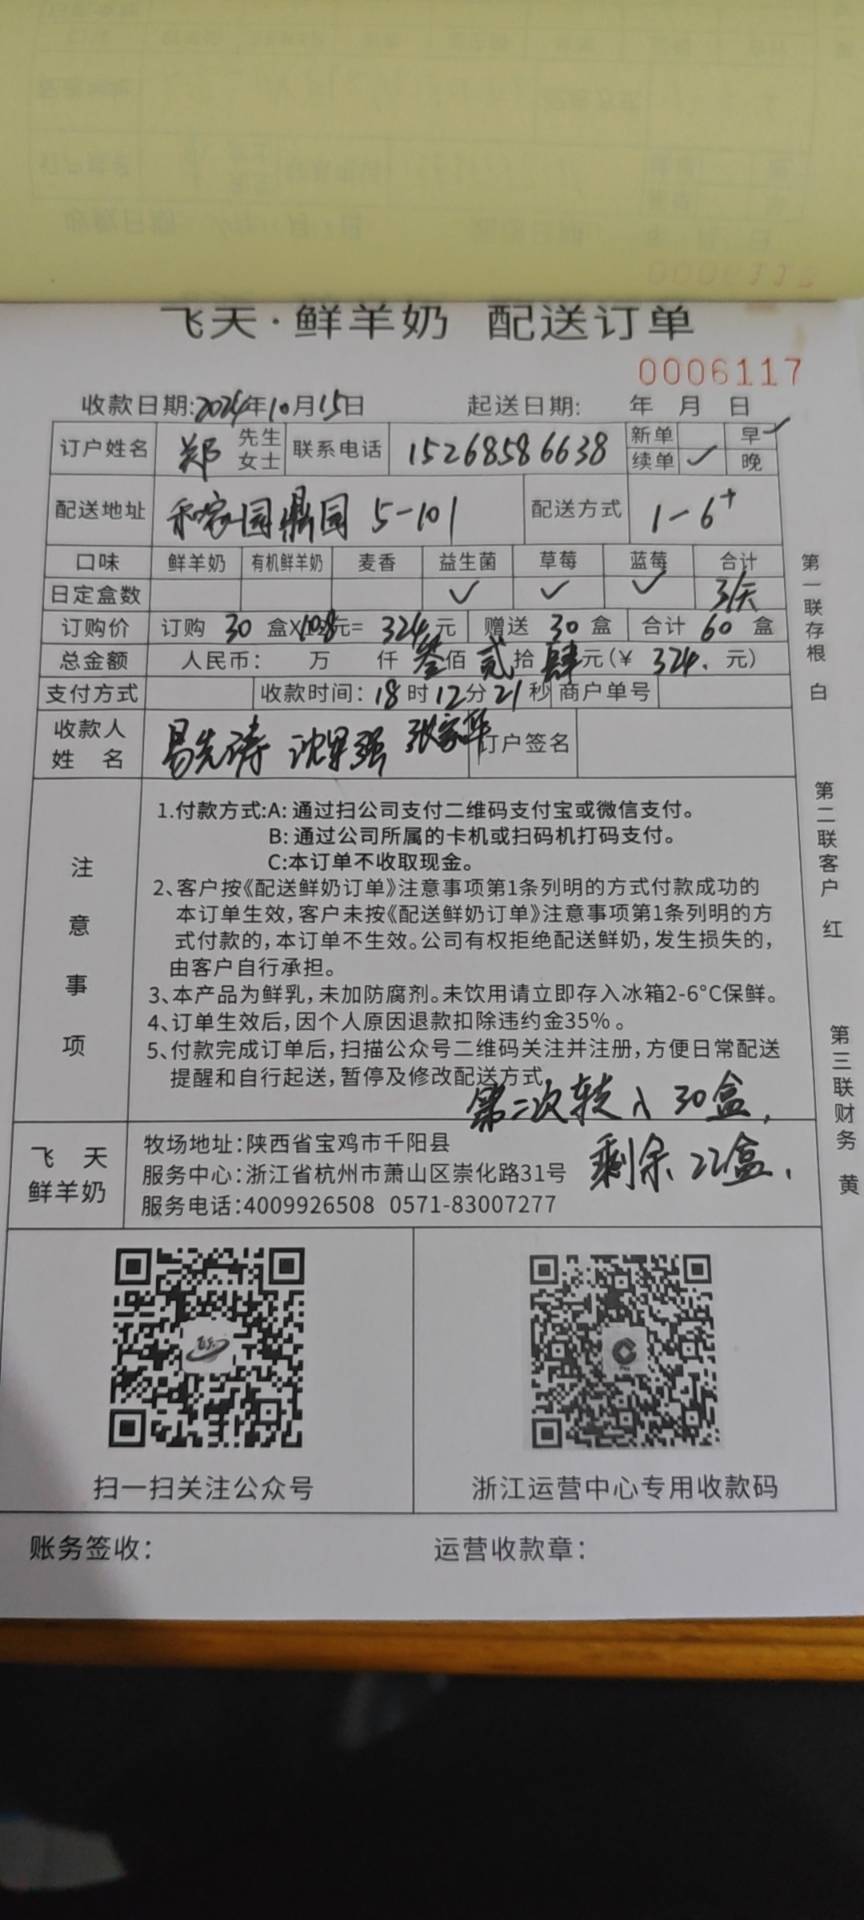 飞天·鲜羊奶 配送订单
0006117
收款日期:2024年10月15日 起送日期: 年 月 日
订户姓名 郑 先生 女士 联系电话 15268586638 新单 早✓
续单 ✓ 晚
配送地址 和家园鼎园 5-101 配送方式 1-6+
口味 鲜羊奶 有机鲜羊奶 麦香 益生菌 草莓 蓝莓 合计
日定盒数 ✓ ✓ ✓ 3/天
订购价 订购 30 盒X10.8元= 324元 赠送 30 盒 合计 60 盒
总金额 人民币: 万 仟 叁佰 贰拾 肆元(¥ 324. 元)
支付方式 收款时间:18时12分21秒 商户单号
收款人姓名 易先涛 沈早强 张家华 订户签名
注意事项
1.付款方式:A:通过扫公司支付二维码支付宝或微信支付。
B:通过公司所属的卡机或扫码机打码支付。
C:本订单不收取现金。
2、客户按《配送鲜奶订单》注意事项第1条列明的方式付款成功的
本订单生效,客户未按《配送鲜奶订单》注意事项第1条列明的方
式付款的,本订单不生效。公司有权拒绝配送鲜奶,发生损失的,
由客户自行承担。
3、本产品为鲜乳,未加防腐剂。未饮用请立即存入冰箱2-6°C保鲜。
4、订单生效后,因个人原因退款扣除违约金35%。
5、付款完成订单后,扫描公众号二维码关注并注册,方便日常配送
提醒和自行起送,暂停及修改配送方式。
第二次转入30盒,
剩余22盒.
飞天鲜羊奶
牧场地址:陕西省宝鸡市千阳县
服务中心:浙江省杭州市萧山区崇化路31号
服务电话:4009926508 0571-83007277
扫一扫关注公众号 浙江运营中心专用收款码
账务签收: 运营收款章:
第一联存根 白
第二联客户 红
第三联财务 黄